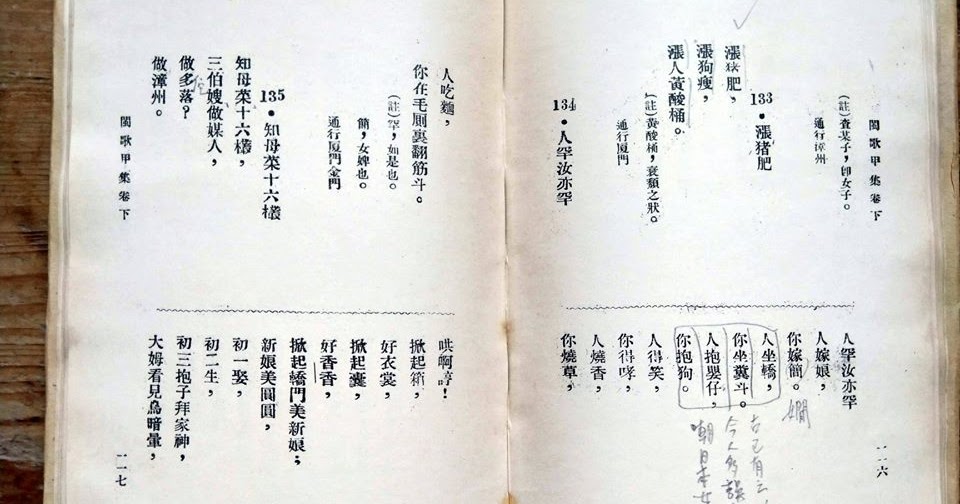 閩歌甲集卷下
一一六
(註)查某子,卽女子。
通行漳州
133・漲猪肥
漲猪肥,
漲狗瘦,
漲人黃酸桶。
(註)黃酸桶,衰頹之狀。
通行厦門
134・人罕汝亦罕
人罕汝亦罕
人嫁娘,
你嫁簡。
嫺
人坐轎,
你坐糞斗。
人抱嬰仔,
你抱狗。
古已有云,
今人多誤
嘲日本女
人得笑,
你得哮,
人燒香,
你燒草,
人吃麵,
你在毛厠裏翻筋斗。
(註)罕,如是也。
簡,女婢也。
通行厦門金門
135・知母菜十六欉
知母菜十六欉,
三伯嫂做媒人,
做多落?
做漳州。
閩歌甲集卷下
哄啊諄!
掀起箱,
好衣裳,
掀起囊,
好香香,
掀起轎門美新娘;
新娘美圓圓,
初一娶,
初二生,
初三抱子拜家神,
大姆看見烏暗暈,
一一七